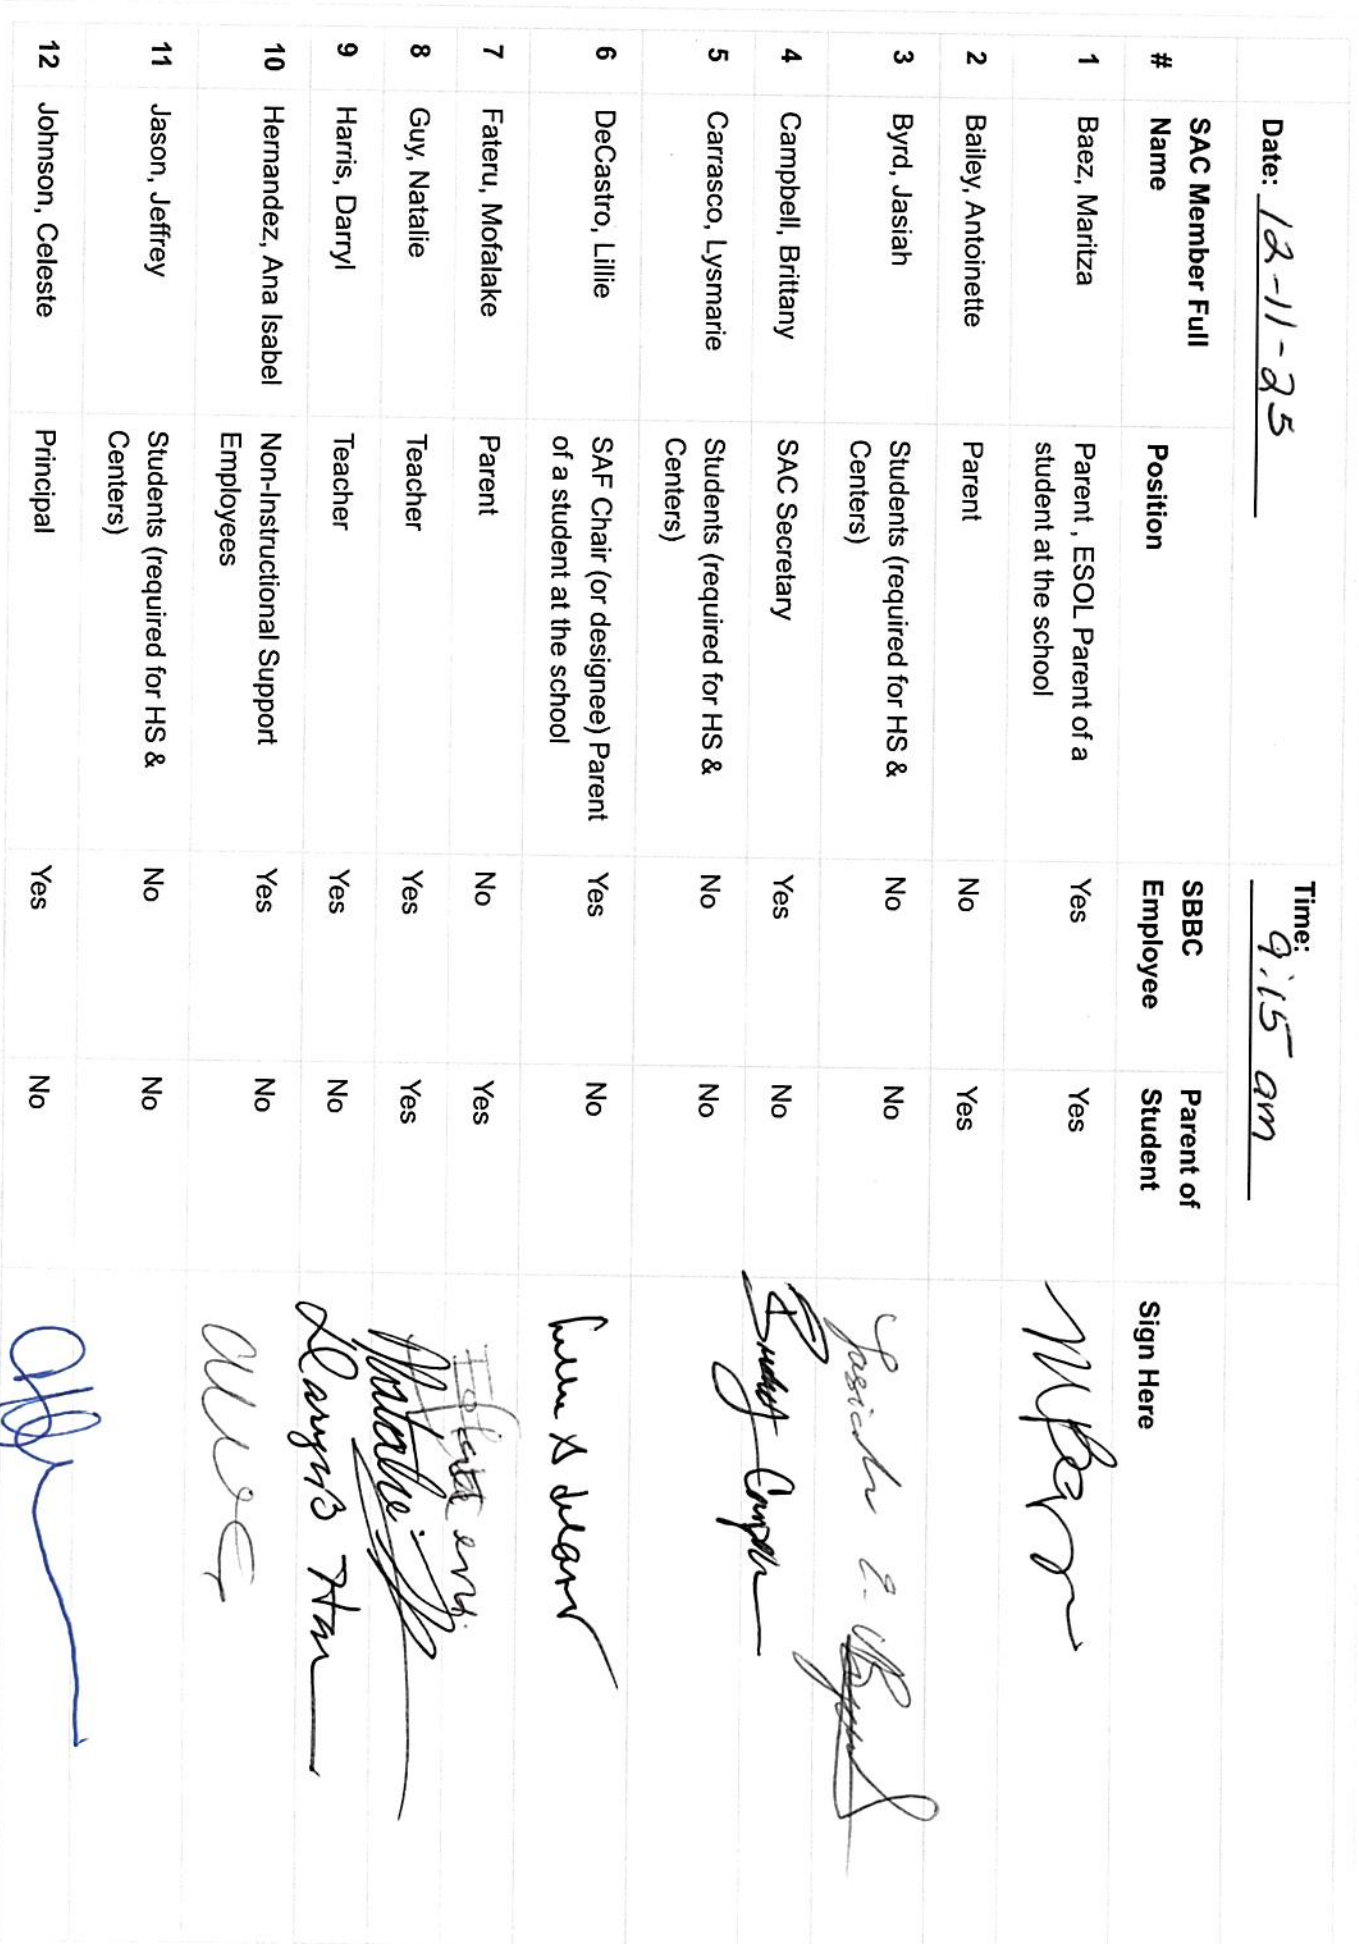 Date: 12-11-25 Time: 9:15 am
# SAC Member Full Name Position SBBC Employee Parent of Student Sign Here
1 Baez, Maritza Parent , ESOL Parent of a student at the school Yes Yes
2 Bailey, Antoinette Parent No Yes
3 Byrd, Jasiah Students (required for HS & Centers) No No Jasiah E. Byrd
4 Campbell, Brittany SAC Secretary Yes No
5 Carrasco, Lysmarie Students (required for HS & Centers) No No
6 DeCastro, Lillie SAF Chair (or designee) Parent of a student at the school Yes No
7 Fateru, Mofalake Parent No Yes
8 Guy, Natalie Teacher Yes Yes Natalie
9 Harris, Darryl Teacher Yes No
10 Hernandez, Ana Isabel Non-Instructional Support Employees Yes No
11 Jason, Jeffrey Students (required for HS & Centers) No No
12 Johnson, Celeste Principal Yes No